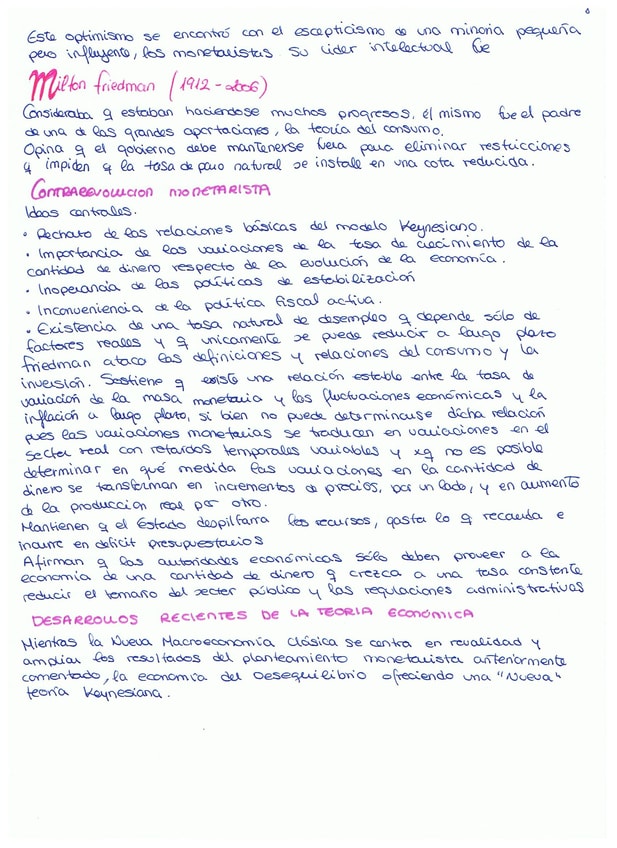 Este optimismo se encontró con el escepticismo de una minoria pequeña
pero influyente, los monetaristas. Su lider intelectual fue
Milton friedman (1912-2006)
Consideraba q estaban haciendose muchos progresos, él mismo fue el padre
de una de las grandes aportaciones, la teoría del consumo.
Opina q el gobierno debe mantenerse fuera para eliminar restricciones
q impiden q la tasa de paro natural se install en una cota reducida.
CONTRAREVOLUCION MONETARISTA
Ideas centrales.
· Rechazo de las relaciones básicas del modelo Keynesiano.
· Importancia de las variaciones de la tasa de crecimiento de la
cantidad de dinero respecto de la evolución de la economía.
· Inoperancia de las políticas de estabilización
· Inconveniencia de la política fiscal activa.
· Existencia de una tasa natural de desempleo q depende sólo de
factores reales y q unicamente se puede reducir a largo plazo
friedman ataco las definiciones y relaciones del consumo y la
inversión. Sostiene q existe una relación estable entre la tasa de
variación de la masa monetaria y las fluctuaciones económicas y la
inflación a largo plazo, si bien no puede determinarse dicha relación
pues las variaciones monetarias se traducen en variaciones en el
sector real con retardos temporales variables y xq no es posible
determinar en qué medida las variaciones en la cantidad de
dinero se transforman en incrementos de precios, por un lado, y en aumento
de la produccion real por otro.
Mantienen q el Estado despilfarra los recursos, gasta lo q recauda e
incurre en deficit presupuestarios
Afirman q las autoridades económicas sólo deben proveer a la
economía de una cantidad de dinero q crezca a una tasa constante
reducir el tamaño del sector público y las regulaciones administrativas
DESARROLLOS RECIENTES DE LA TEORIA ECONÓMICA
Mientras la Nueva Macroeconomía Clásica se centra en revalidad y
ampliar los resultados del planteamiento monetarista anteriormente
comentado, la economía del Desequilibrio ofreciendo una "Nueva"
teoría Keynesiana.